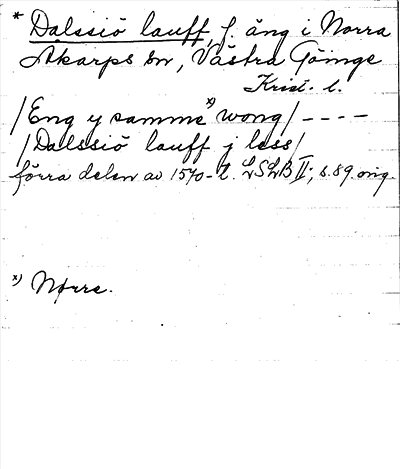 * Dalssiö lauff, f. äng i Norra
Åkarps sn, Västra Göinge
Krist. l.
/Eng y samme *) wong/ ----
/Dalssiö lauff j less/
förra delen av 1570-t. LSLB II; s. 89. orig.
*) Nørre.